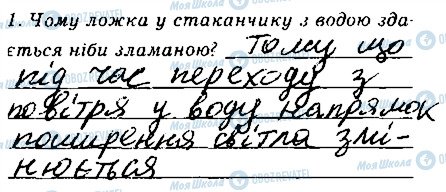 1. Чому ложка у стаканчику з водою зда-
ється ніби зламаною? Тому що
під час переходу з
повітря у воду напрямок
поширення світла змі-
нюється